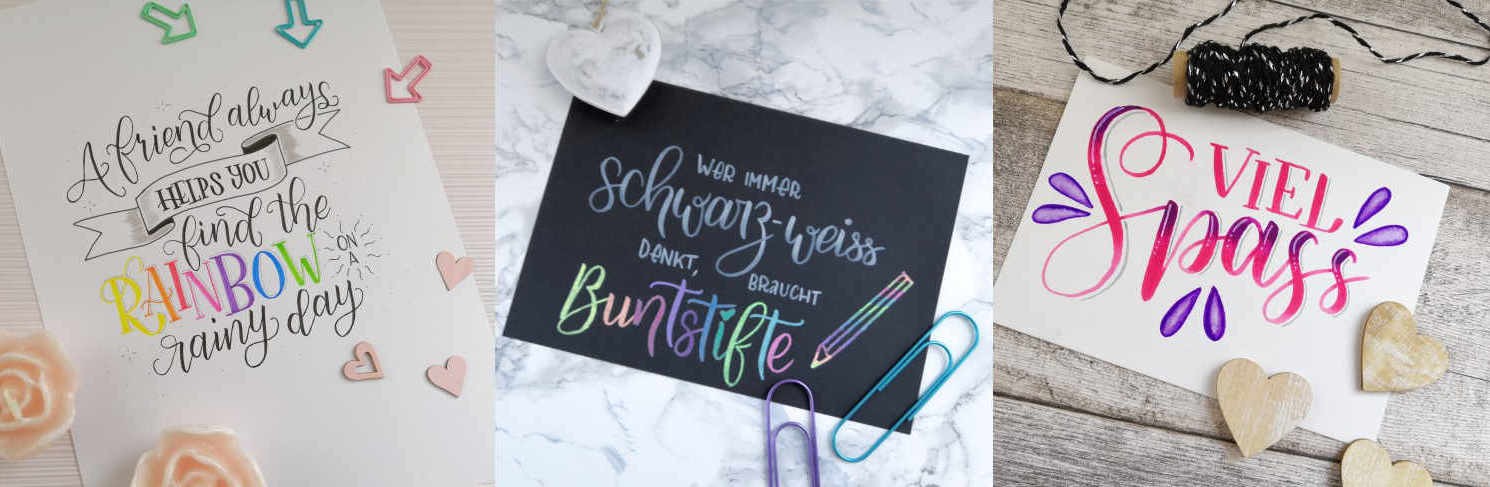 A friend always
HELPS YOU
find the
RAINBOW
ON
A
rainy day
WER IMMER
schwarz-weiss
DENKT,
BRAUCHT
Buntstifte
VIEL
Spass